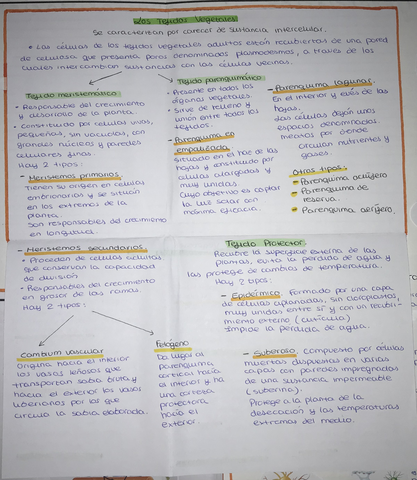 Los Tejidos Vegetales
Se caracterizan por carecer de sustancia intercelular.
• Las células de los tejidos vegetales adultos están recubiertas de una pared
de celulosa que presenta poros denominados plasmodesmos, a través de los
cuales intercambian sustancias con las células vecinas.
Tejido meristemático
• Responsables del crecimiento
y desarrollo de la planta.
• Constituido por células vivas,
pequeñas, sin vacuolas, con
grandes núcleos y paredes
celulares finas
Hay 2 tipos:
- Meristemos primarios.
Tienen su origen en células
embrionarias y se sitúan
en los extremos de la
planta.
Son responsables del crecimiento
en longitud.
Tejido parenquimático
• Presente en todos los
órganos vegetales.
• Sirve de relleno y
unión entre todos los
tejidos.
- Parénquima en
empalizada
Situado en el haz de las
hojas y constituido por
células alargadas y
muy unidas.
Cuyo objetivo es captar
la luz solar con
máxima eficacia.
- Parénquima lagunar.
En el interior y envés de las
hojas.
Las células dejan unos
espacios denominados
meatos por donde
circulan nutrientes y
gases.
Otros tipos:
• Parénquima acuífero
• Parénquima de
reserva.
• Parénquima aerífero.
- Meristemos secundarios.
• Proceden de células adultas
que conservan la capacidad
de división
• Responsables del crecimiento
en grosor de las ramas.
Hay 2 tipos:
Cambium vascular
Origina hacia el interior
los vasos leñosos que
transportan savia bruta y
hacia el exterior los vasos
liberianos por los que
circula la savia elaborada.
Felógeno
Da lugar al
parénquima
cortical hacia
el interior y ha
una corteza
protectora
hacia el
exterior.
Tejido Protector.
Recubre la superficie externa de las
plantas, evita la pérdida de agua y
las protege de cambios de temperatura.
Hay 2 tipos:
- Epidérmico: formado por una capa
de células aplanadas, sin cloroplastos,
muy unidas entre sí y con un recubri-
miento externo (cutícula)
Impide la pérdida de agua.
- Suberoso: compuesto por células
muertas dispuestas en varias
capas con paredes impregnadas
de una sustancia impermeable
(suberina).
Protege a la planta de la
desecación y las temperaturas
extremas del medio.